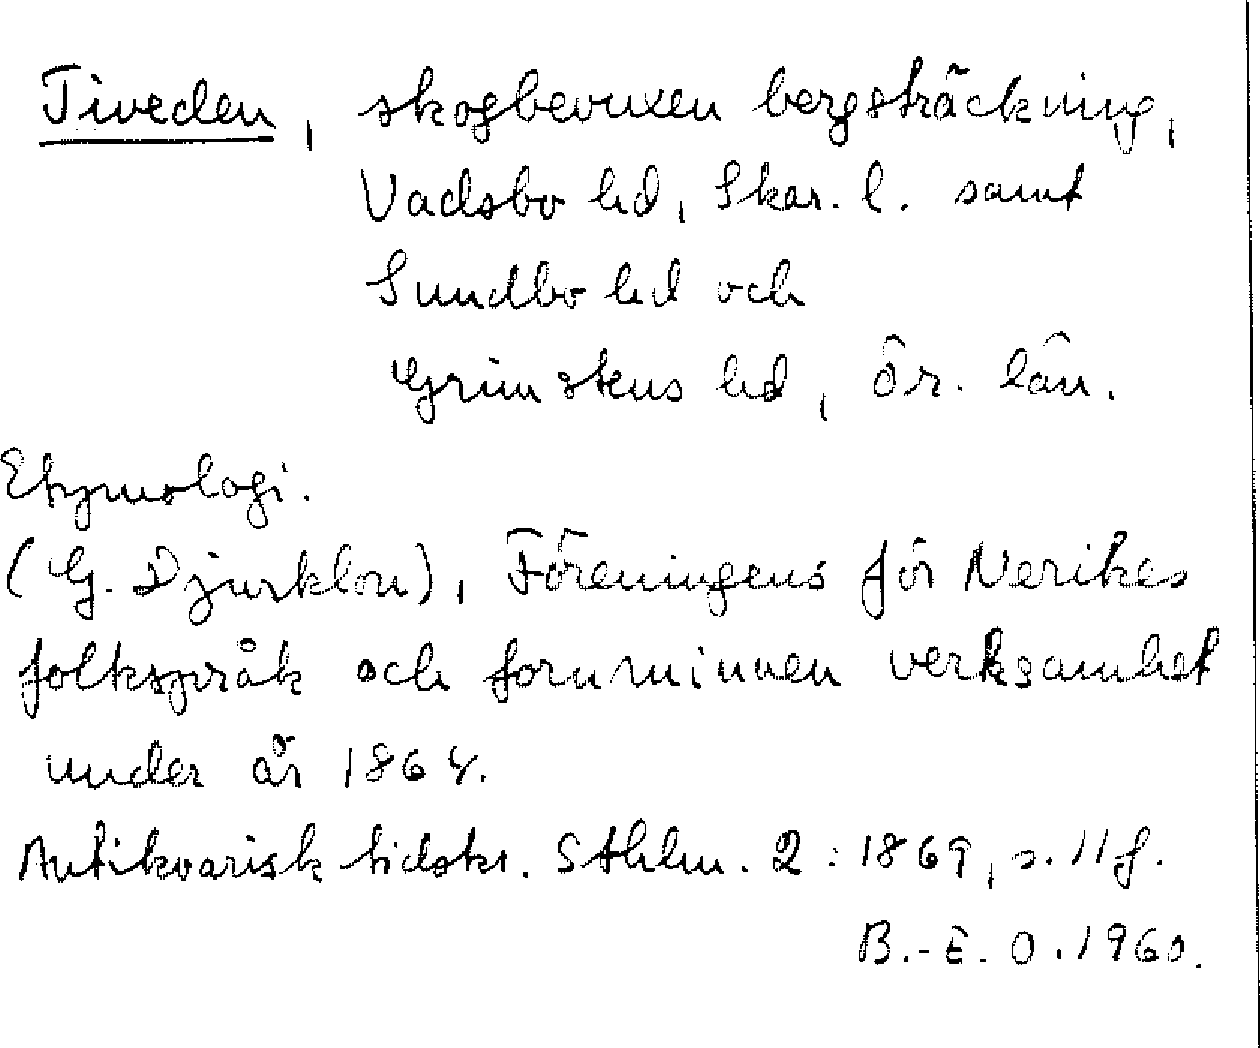 Tiveden, skogbevuxen bergsträckning,
Vadsbo hd, Skar. l. samt
Sundbo hd och
Grimstens hd, Ör. län.
Etymologi.
(G. Djurklou), Föreningens för Nerikes
folkspråk och fornminnen verksamhet
under år 1864.
Antikvarisk tidskr. Sthlm. 2: 1869, s. 11 f.
B.-E. O. 1960.